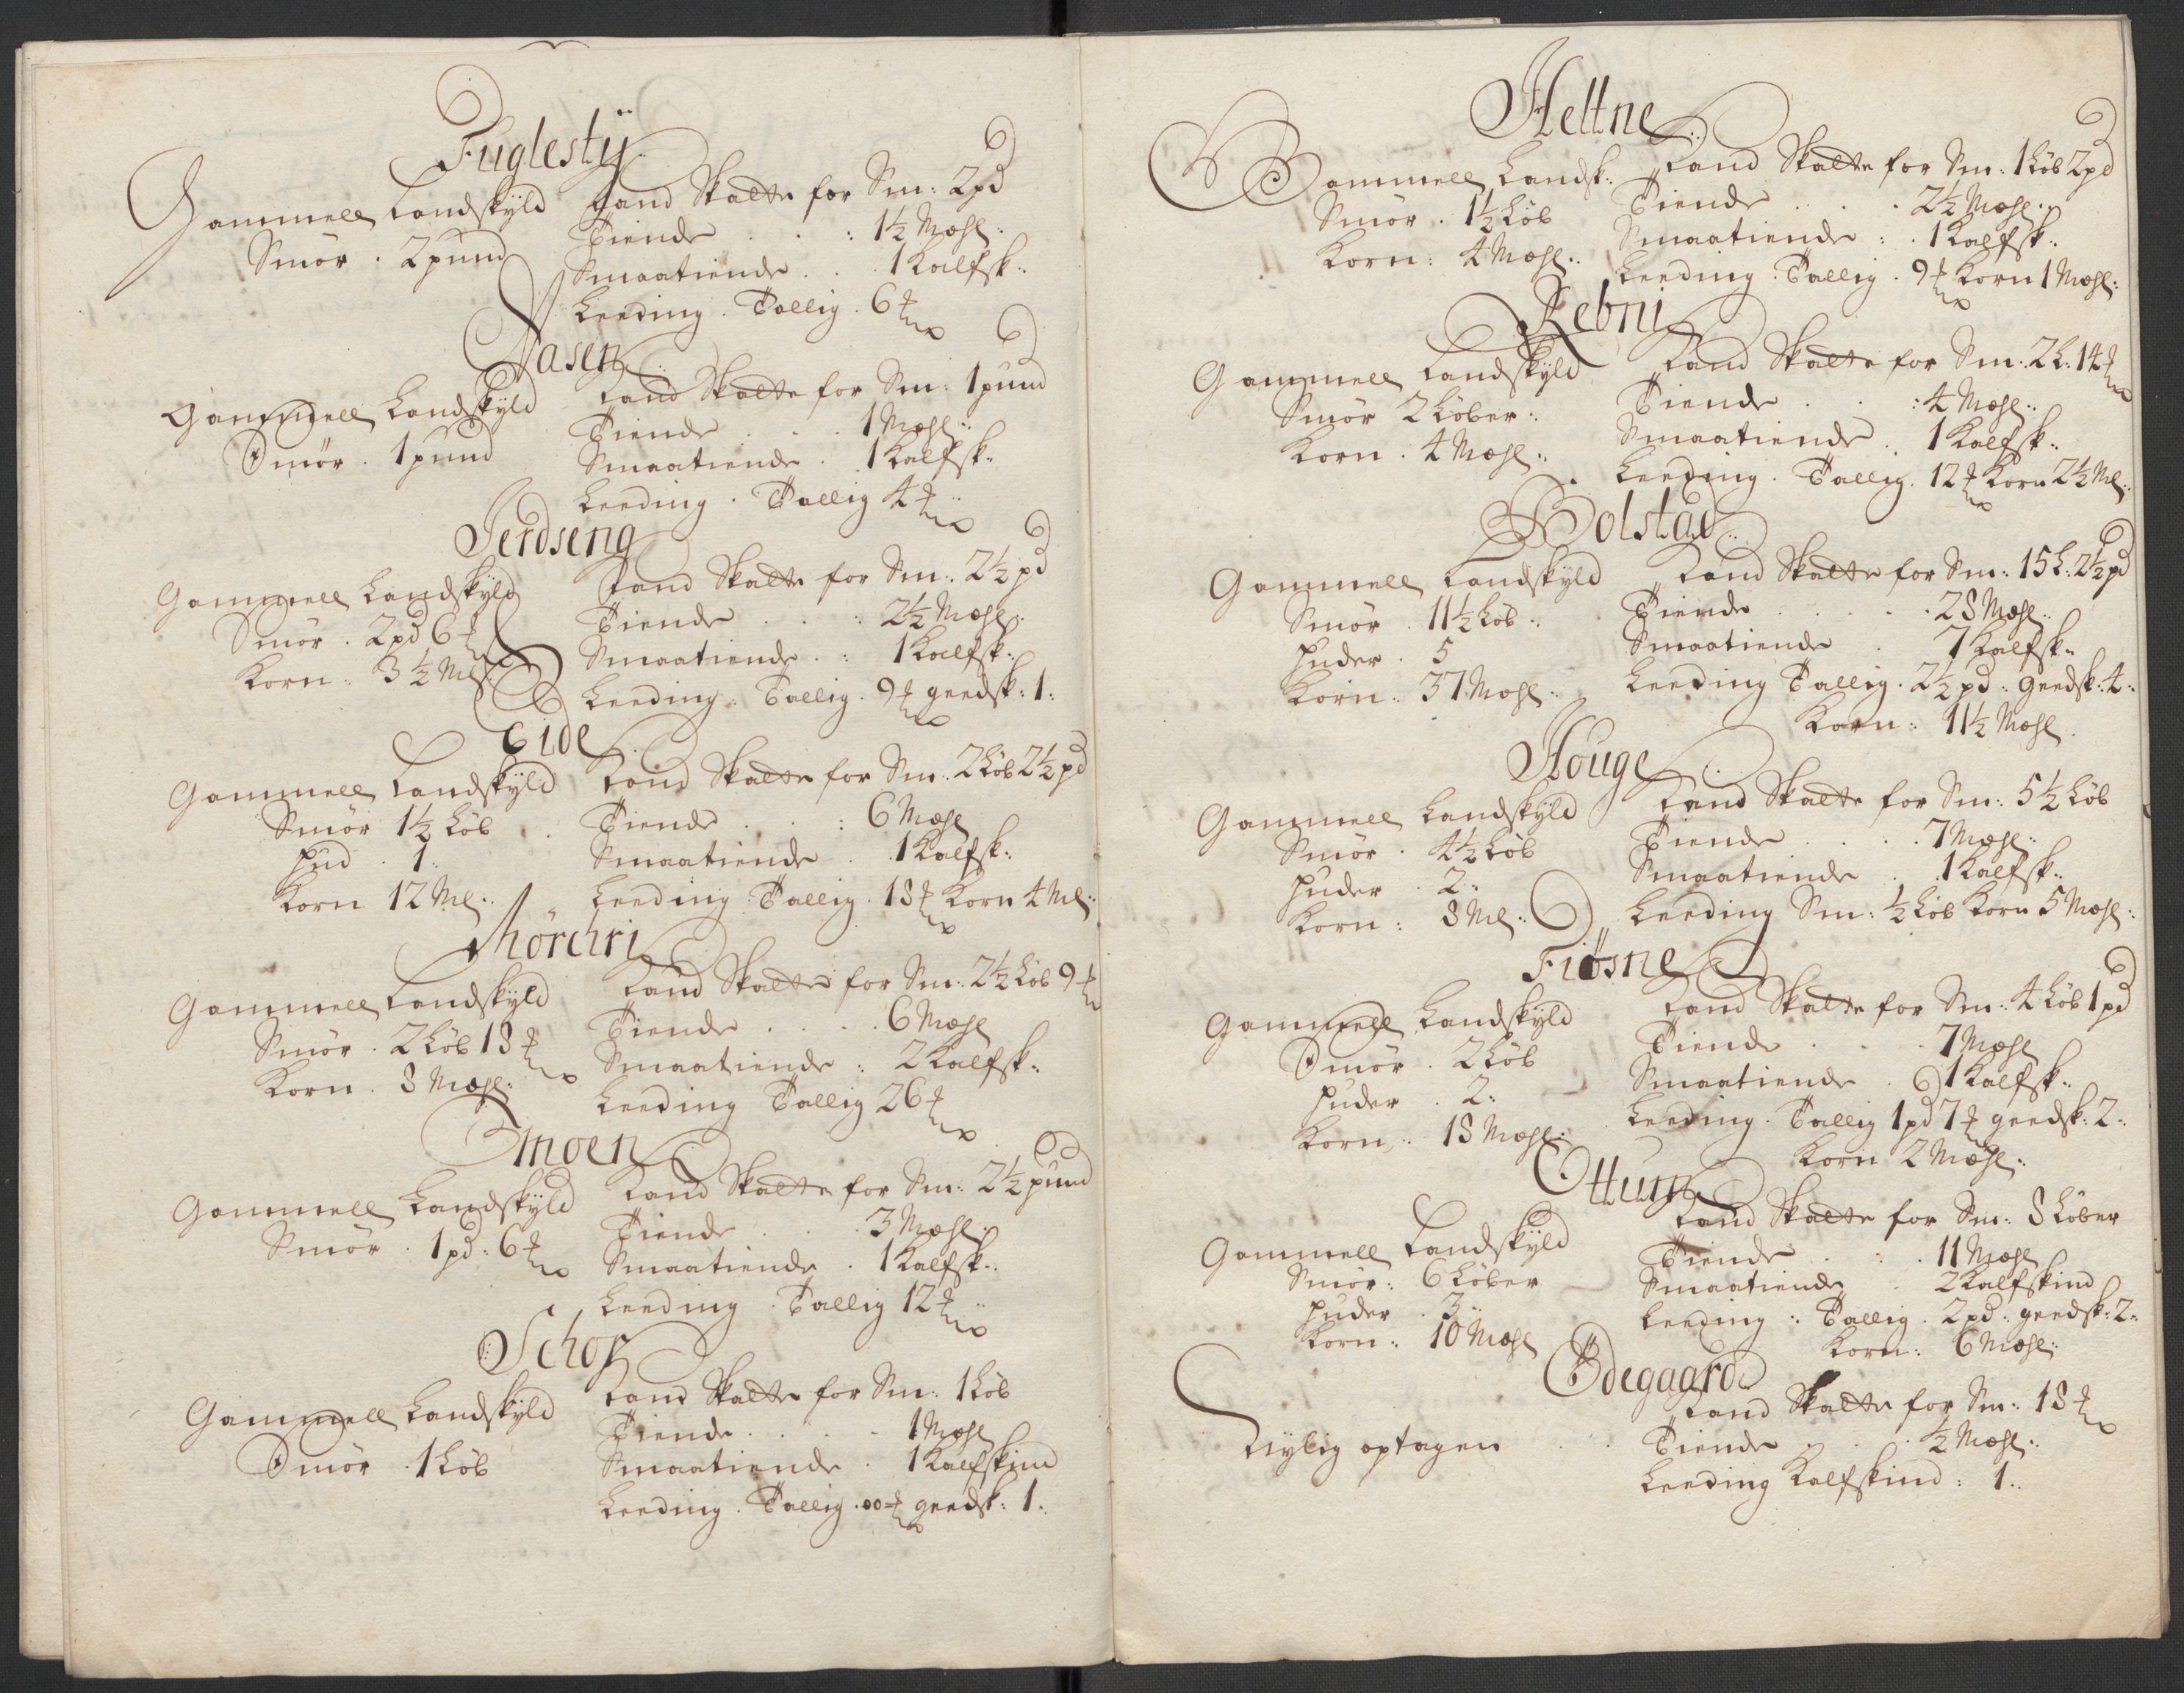 Fuglestÿ
Gammell Landskÿld
Smør . 2 pund
Land Skatte for Sm: 2 pd
Tiende . . : 1½ Mæhl:
Smaatiende . . 1 Kalfsk:
Leeding . Tallig . 6 ℔
Aasen
Gammell Landskÿld
Smør . 1 pund
Land Skatte for Sm: 1 pund
Tiende . . . 1 Mæhl:
Smaatiende . 1 Kalfsk:
Leeding . Tallig 4 ℔
Jerdseng
Gammell Landskÿld
Smør . 2 pd 6 ℔
Korn . 3½ Ml:
Land Skatte for Sm: 2½ pd
Tiende . . : 2½ Mæhl:
Smaatiende . : 1 Kalfsk:
Leeding . Tallig . 9 ℔ geedsk: 1:
Eide
Gammell Landskÿld
Smør 1½ Løb
Hud . 1:
Korn 12 Ml:
Land Skatte for Sm: 2 Løb 2½ pd
Tiende . . : 6 Mæhl
Smaatiende . . 1 Kalfsk:
Leeding . Tallig . 18 ℔ Korn 4 Ml:
Mörchri
Gammell Landskÿld
Smør . 2 Løb 18 ℔
Korn . 8 Mæhl:
Land Skatte for Sm: 2½ Løb 9 ℔
Tiende . . . . 6 Mæhl
Smaatiende : 2 Kalfsk:
Leeding Tallig 26 ℔
Moen
Gammell Landskÿld
Smør . 1 pd: 6 ℔
Land Skatte for Sm: 2½ pund
Tiende . . . 3 Mæhl:
Smaatiende . 1 Kalfsk:
Leeding . Tallig 12 ℔
Schor
Gammell Landskÿld
Smør . 1 Løb
Land Skatte for Sm: 1 Løb
Tiende . . . . 1 Mæhl
Smaatiende . 1 Kalfskind
Leeding . Tallig . 00 ℔ geedsk: 1:
Heltne
Gammell Landsk:
Smør . 1½ Løb
Korn : 4 Mæhl:
Land Skatte for Sm: 1 Løb 2 pd
Tiende . . . 2½ Mæhl:
Smaatiende : . 1 Kalfsk:
Leeding . Tallig . 9 ℔ Korn 1 Mæhl:
Rebni
Gammell Landskÿld
Smør 2 Løber:
Korn . 4 Mæhl:
Land Skatte for Sm: 2 L: 14 ℔
Tiende . . : 4 Mæhl:
Smaatiende . 1 Kalfsk:
Leeding . Tallig . 12 ℔ Korn 2½ Ml:
Bolstad
Gammell Landskÿld
Smør . 11½ Løb:
Huder . 5
Korn : 37 Mæhl:
Land Skatte for Sm: 15 L: 2½ pd
Tiende . . . . 28 Mæhl:
Smaatiende . 7 Kalfsk:
Leeding Tallig . 2½ pd: geedsk: 4:
Korn : 11½ Mæhl.
Houge
Gammell Landskÿld
Smør . 4½ Løb
Huder . 2:
Korn : 8 Ml:
Land Skatte for Sm: 5½ Løb
Tiende . . . . 7 Mæhl:
Smaatiende . . 1 Kalfsk:
Leeding Sm: ½ Løb Korn 5 Mæhl:
Fiøsne
Gammell Landskÿld
Smør . 2 Løb
Huder . 2:
Korn : 18 Mæhl:
Land Skatte for Sm: 4 Løb 1 pd
Tiende . . . 7 Mæhl
Smaatiende . 1 Kalfsk:
Leeding . Tallig 1 pd 7 ℔ geedsk: 2:
Korn 2 Mæhl:
Ottum
Gammell Landskÿld
Smør: 6 Løber
Huder . 3:
Korn : 10 Mæhl
Land Skatte for Sm: 8 Løber
Tiende . : . 11 Mæhl
Smaatiende . 2 Kalfskind
Leeding : Tallig . 2 pd: geedsk: 2:
Korn : 6 Mæhl:
Ödegaard
Nylig optagen
Land Skatte for Sm: 18 ℔
Tiende . . . ½ Mæhl:
Leeding Kalfskind : 1: